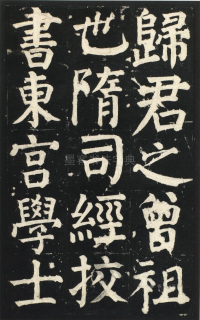 歸君之曾祖
世隋司經挍
書東宮學士